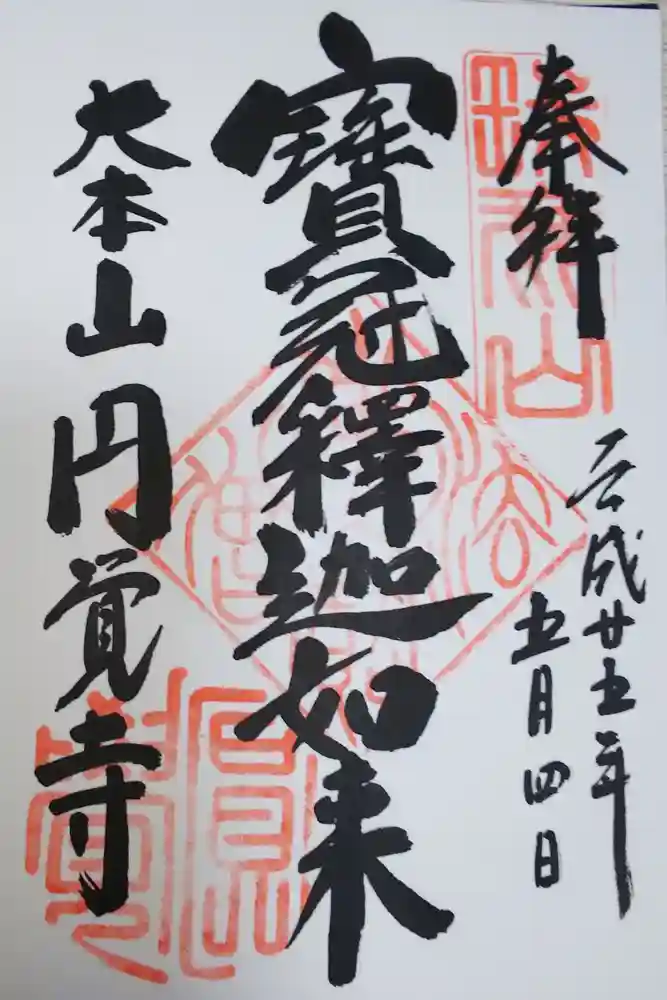 奉拝
平成廿五年
五月四日
寳冠釋迦如来
大本山円覚寺
瑞鹿山